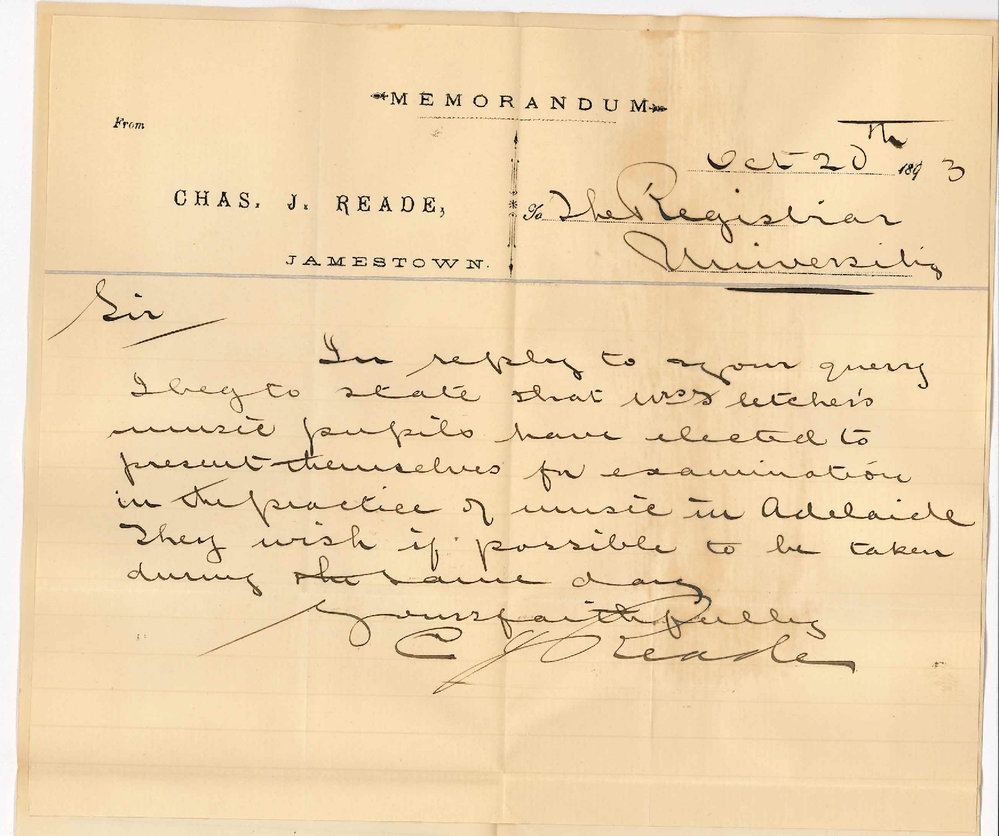 MEMORANDUM
From
Oct 20th 1893
CHAS. J. READE,
To The Registrar
JAMESTOWN.
University
Sir
In reply to your query
I beg to state that Mrs Letcher's
music pupils have elected to
present themselves for examination
in the practice of music in Adelaide
They wish if possible to be taken
during the same day
Yours faithfully
C J Reade